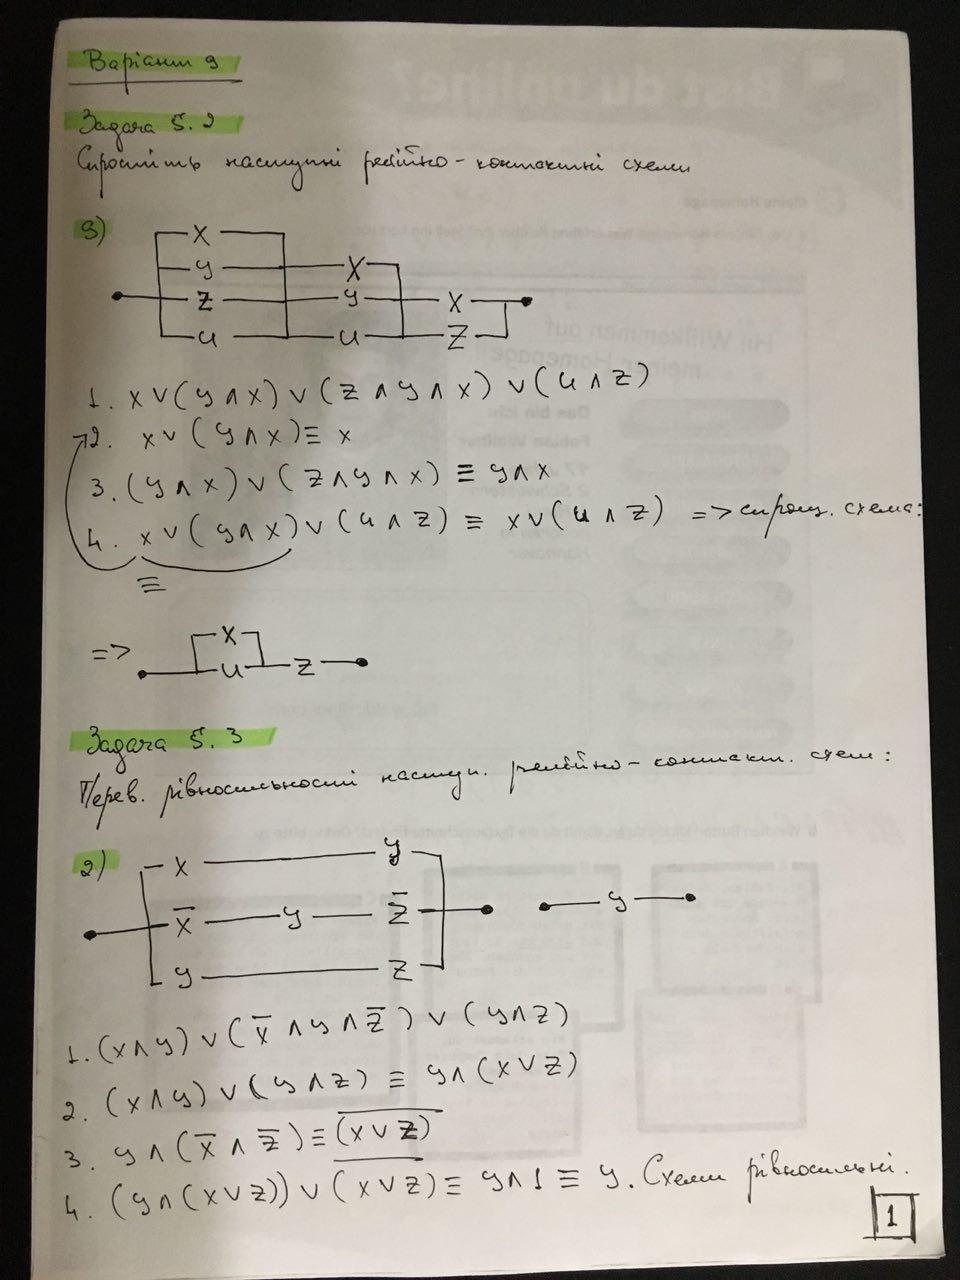 Варіант 9
Задача 5.2
Спростіть наступні релійно-контактні схеми
9)
x
y x
z y x
u u z
1. x ∨ (y ∧ x) ∨ (z ∧ y ∧ x) ∨ (u ∧ z)
2. x ∨ (y ∧ x) ≡ x
3. (y ∧ x) ∨ (z ∧ y ∧ x) ≡ y ∧ x
4. x ∨ (y ∧ x) ∨ (u ∧ z) ≡ x ∨ (u ∧ z) => спрощ. схема:
≡
=> x
u z
Задача 5.3
Перев. рівносильності наступн. релійно-контакт. схем:
2) x y
x̅ y z̅ y
y z
1. (x ∧ y) ∨ (x̅ ∧ y ∧ z̅) ∨ (y ∧ z)
2. (x ∧ y) ∨ (y ∧ z) ≡ y ∧ (x ∨ z)
3. y ∧ (x̅ ∧ z̅) ≡ (x̅ ̅∨̅ ̅z̅)
4. (y ∧ (x ∨ z)) ∨ (x̅ ̅∨̅ ̅z̅) ≡ y ∧ 1 ≡ y. Схеми рівносильні.
1